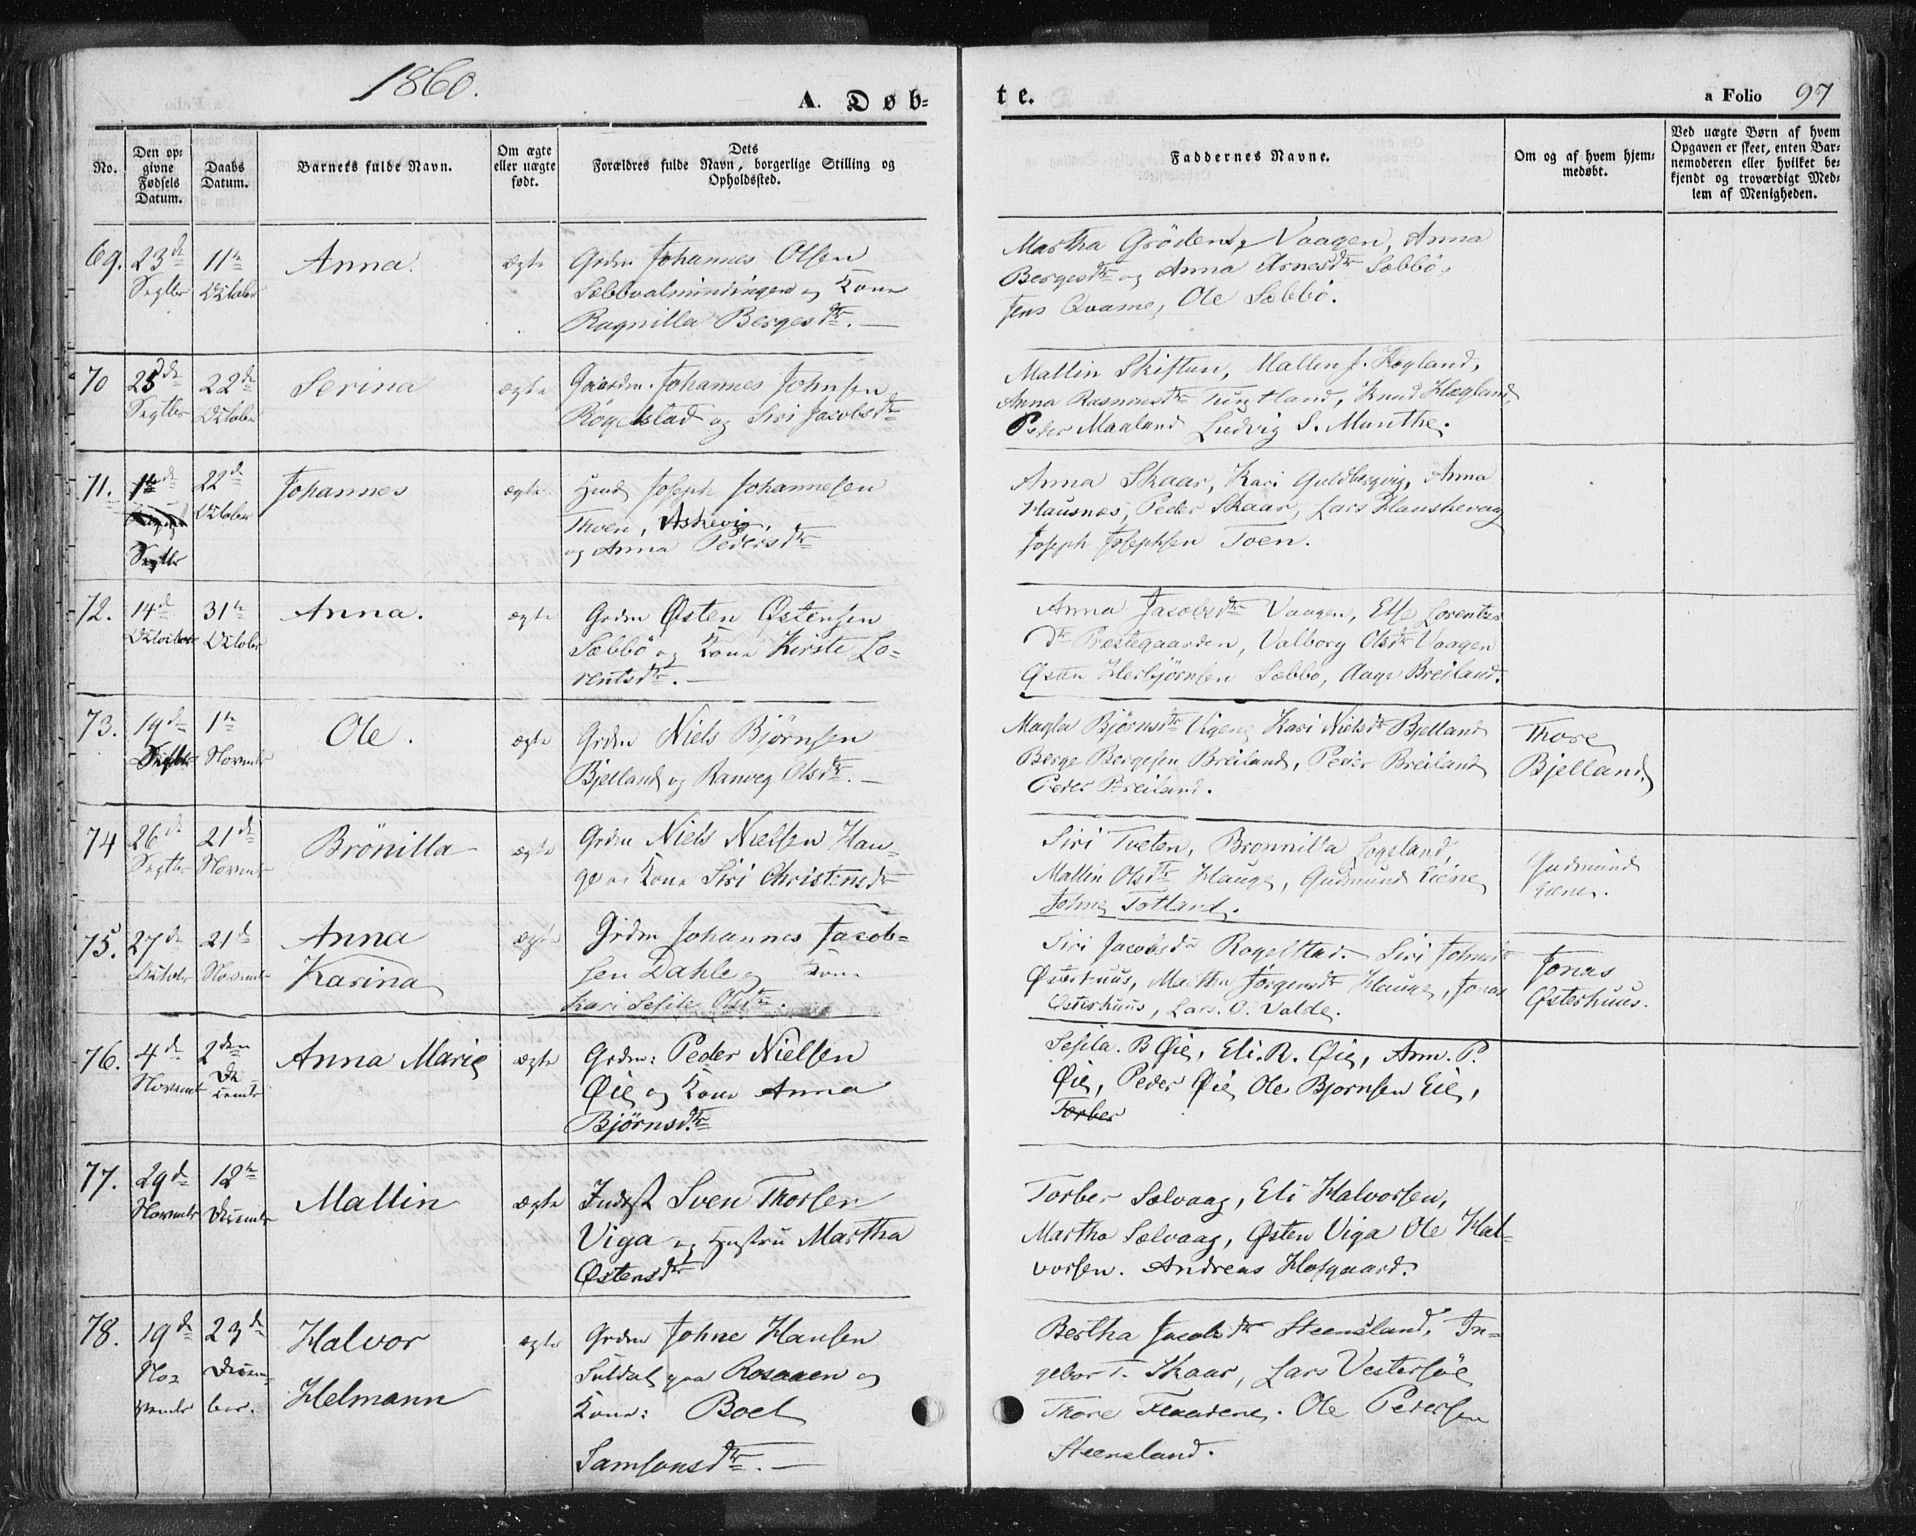 1860.
A. Døb-
te.
a Folio 97
No.
Den op-
givne
Fødsels
Datum.
Daabs
Datum.
Barnets fulde Navn.
Om ægte
eller uægte
født.
Dets
Forældres fulde Navn, borgerlige Stilling og
Opholdssted.
Faddernes Navne.
Om og af hvem hjem-
medøbt.
Ved uægte Børn af hvem
Opgaven er skeet, enten Bar-
nemoderen eller hvilket be-
kjendt og troværdigt Med-
lem af Menigheden.
69.
23de
Septbr
11te
October
Anna.
ægte
Grdm Johannes Olsen
og Kone
Ragnilla Bergesdtr. —
Martha Vaagen, Anna
Bergesdtr og Anna Arnesdtr Sæbbö,
Jens Qvame, Ole Sæbbö.
70
25de
Septbr
22de
October
Serina
ægte
Gaardm. Johannes Johnsen
Rögelstad og Siri Jacobsdtr
Mallin Skiftun, Mallen J. Hogland,
Anna Rasmusdtr Tungtland, Knud Hægland,
Peder Maaland Ludvig S. Munthe.
71.
Septbr
22de
October
Johannes
ægte
Huusm Joseph Johannesen
Thoen, Askevig,
og Anna Pedersdtr
Anna Skaar, Kari Guldbergvig, Anna
Hausnes, Peder Skaar, Lars Hanskevaag
Joseph Josephsen Toen.
72.
14de
October
31te
October
Anna.
ægte
Grdm Østen Østensen
Sæbbö og Kone Kirste Lo-
rentsdtr. —
Anna Jacobsdtr Vaagen, Else Lorents
dtr Præstegaarden, Valborg Olsdtr Vaagen
Østen Herbjörnsen Sæbbo, Aage Breiland.
73.
19de
Septbr
1te
Novembr
Ole.
ægte
Grdm Niels Bjørnsen
Bjelland og Ranveg Olsdtr. —
Magla Bjørnsdtr Vigen, Kari Nielsdtr Bjelland
Berge Bergesen Breiland, Peder Breiland
Peder Breiland.
Thore
Bjelland
74
26de
Septbr
21de
Novembr
Brönilla
ægte
Grdm Niels Nielsen Hau-
ge og Kone Siri Christensdtr
Siri Tveten, Bronnilla Fogeland,
Mallin Olsdtr Hauge, Gudmund Eiene
Johne Totland.
Gudmund
Eiene.
75.
27de
October
21de
Novembr
Anna
Karina
ægte
Grdm Johannes Jacob-
sen Dahle og Kone
Kari Sesile Olsdtr.
Siri Jacobsdtr Rogelstad. Siri Johnsdtr
Østerhuus, Martha Jörgensdtr Hauge, Jonas
Østerhuus, Lars. O. Valde.
Jonas
Østerhuus.
76.
4de
Novembr
2den
De
cembr
Anna Marie
ægte
Grdm: Peder Nielsen
Øie og Kone Anna
Bjørnsdtr.
Sesila. B Øie, Eli. R. Øie, Ann. P.
Øie, Peder Øie, Ole Bjornsen Eie,
Torber
77.
29de
Novembr
12te
Decembr
Mallin
ægte
Inderst Sven Thorsen
Viga og Hustru Martha
Østensdtr
Torber Sælvaag, Eli Halvorsen,
Martha Sælvaag, Østen Viga Ole Hal-
vorsen. Andreas Hofgaard.
78.
19de
No-
vembr
23de
Decem-
ber.
Halvor
Helmann
ægte
Grdm Johne Hansen
Suldal paa Rosaaen og
Kone: Boel
Samsonsdtr. —
Bertha Jacobsdtr Steensland, In-
gebor T. Skaar, Lars Vestersöe
Thore Flaadene. Ole Pedersen
Steensland.